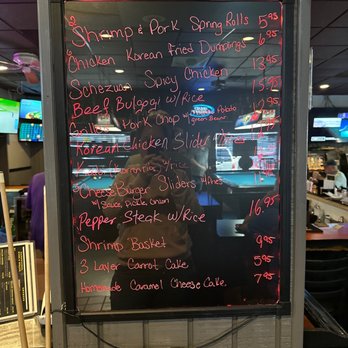 Shrimp & Pork Spring Rolls 5.95
Chicken Korean Fried Dumplings 6.95
Schezuan Spicy Chicken
Beef Bulgogi w/ Rice
Pork Chop w/ Potato
green Beans
Korean Chicken Slider
w/ Rice
Cheese Burger Sliders
w/ Sauce Pickle Onion
Pepper Steak w/ Rice 16.95
Shrimp Basket 9.95
3 Layer Carrot Cake 5.95
Homemade Caramel Cheese Cake. 7.95